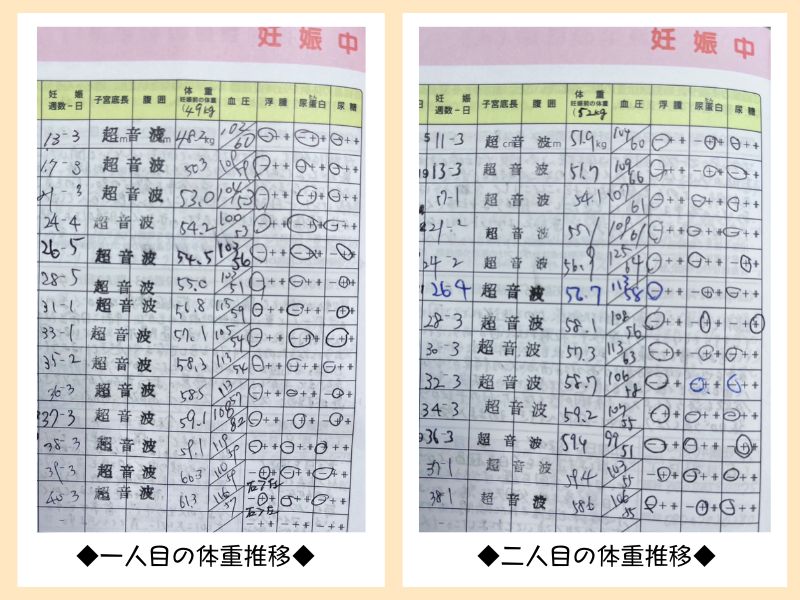 妊娠中
妊娠週数-日 子宮底長 腹囲 体重 妊娠前の体重 (49kg 血圧 浮腫 尿蛋白 尿糖
13-3 超音波 48.2kg 102/60
17-3 超音波 50.3
21-3 超音波 53.0 104/53
24-4 超音波 54.2 100/53
26-5 超音波 54.5 103/56
28-5 超音波 55.0 103/51
31-1 超音波 56.8 115/59
33-1 超音波 57.1 105/54
35-2 超音波 58.3 113/54
36-3 超音波 58.5 113/57
37-3 超音波 59.1
38-3 超音波 59.1
39-3 超音波 60.3
40-3 超音波 61.3
◆一人目の体重推移◆
妊娠中
妊娠週数-日 子宮底長 腹囲 体重 妊娠前の体重 (52kg 血圧 浮腫 尿蛋白 尿糖
11-3 超音波 51.9kg 104/60
13-3 超音波 51.7 109/66
17-1 超音波 54.1 107/61
21-2 超音波 109/61
24-2 超音波 56.9 125/64
26 4 超音波 56.7 113/58
28-3 超音波 58.1 108/56
30-3 超音波 57.3 113/63
32-3 超音波 58.7 106/58
34-3 超音波 59.2 107/55
36-3 超音波 59.4 99/51
37-1 超音波 59.4 103/55
38 1 超音波 58.6 106/55
◆二人目の体重推移◆